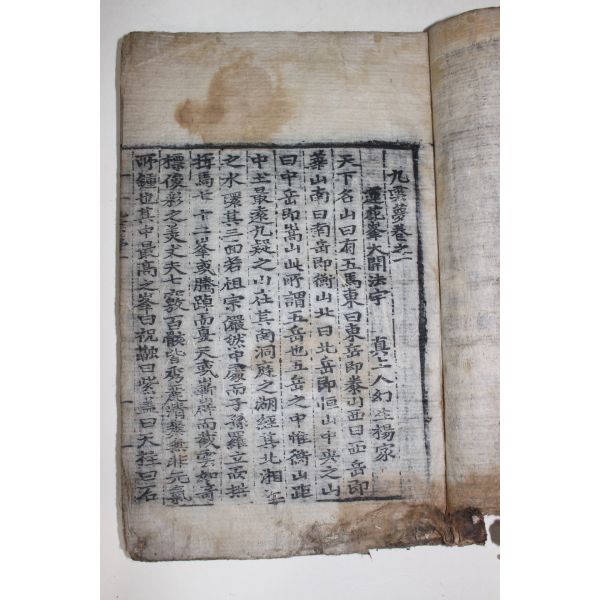 九雲夢卷之一
蓮花峯大開法宇 真上人幻生楊家
天下名山曰有五焉東曰東岳即泰山西曰西岳即
華山南曰南岳即衡山北曰北岳即恒山中央之山
曰中岳即嵩山此所謂五岳也五岳之中惟衡山距
中土最遠九疑之山在其南洞庭之湖經其北湘江
之水環其三面若祖宗儼然中處而子孫羅立而拱
揖焉七十二峯或騰踔而戛天或嶄崒而截雲如奇
標俊彩之美丈夫七竅百骸皆秀麗清爽無非元氣
所鍾也其中最高之峯曰祝融曰紫盖曰天柱曰石